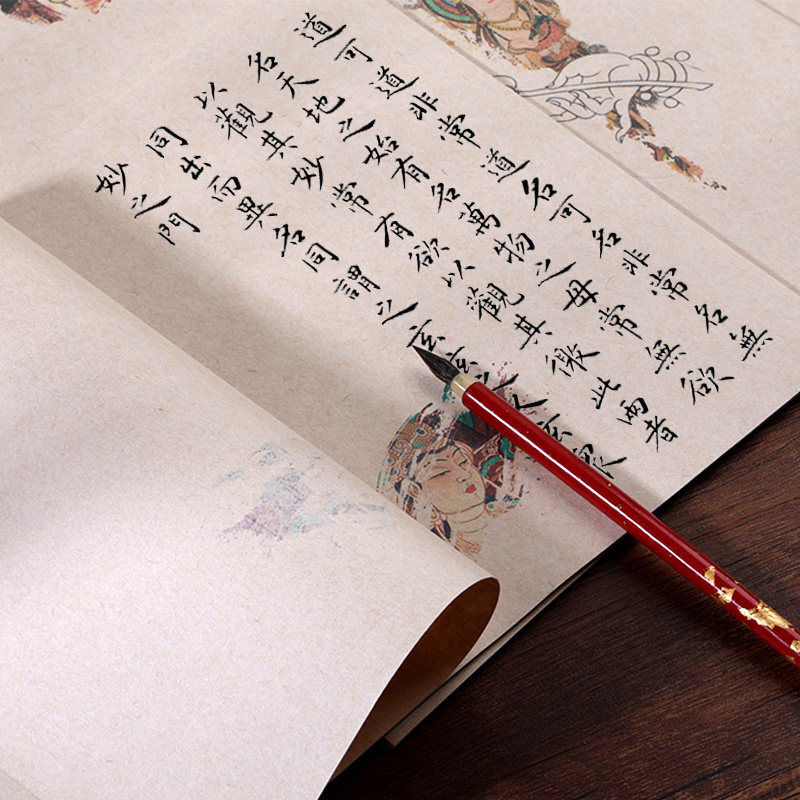 道可道非常道名可名非常名無
名天地之始有名萬物之母常無欲
以觀其妙常有欲以觀其徼此兩者
同出而異名同謂之玄玄之又玄眾
妙之門